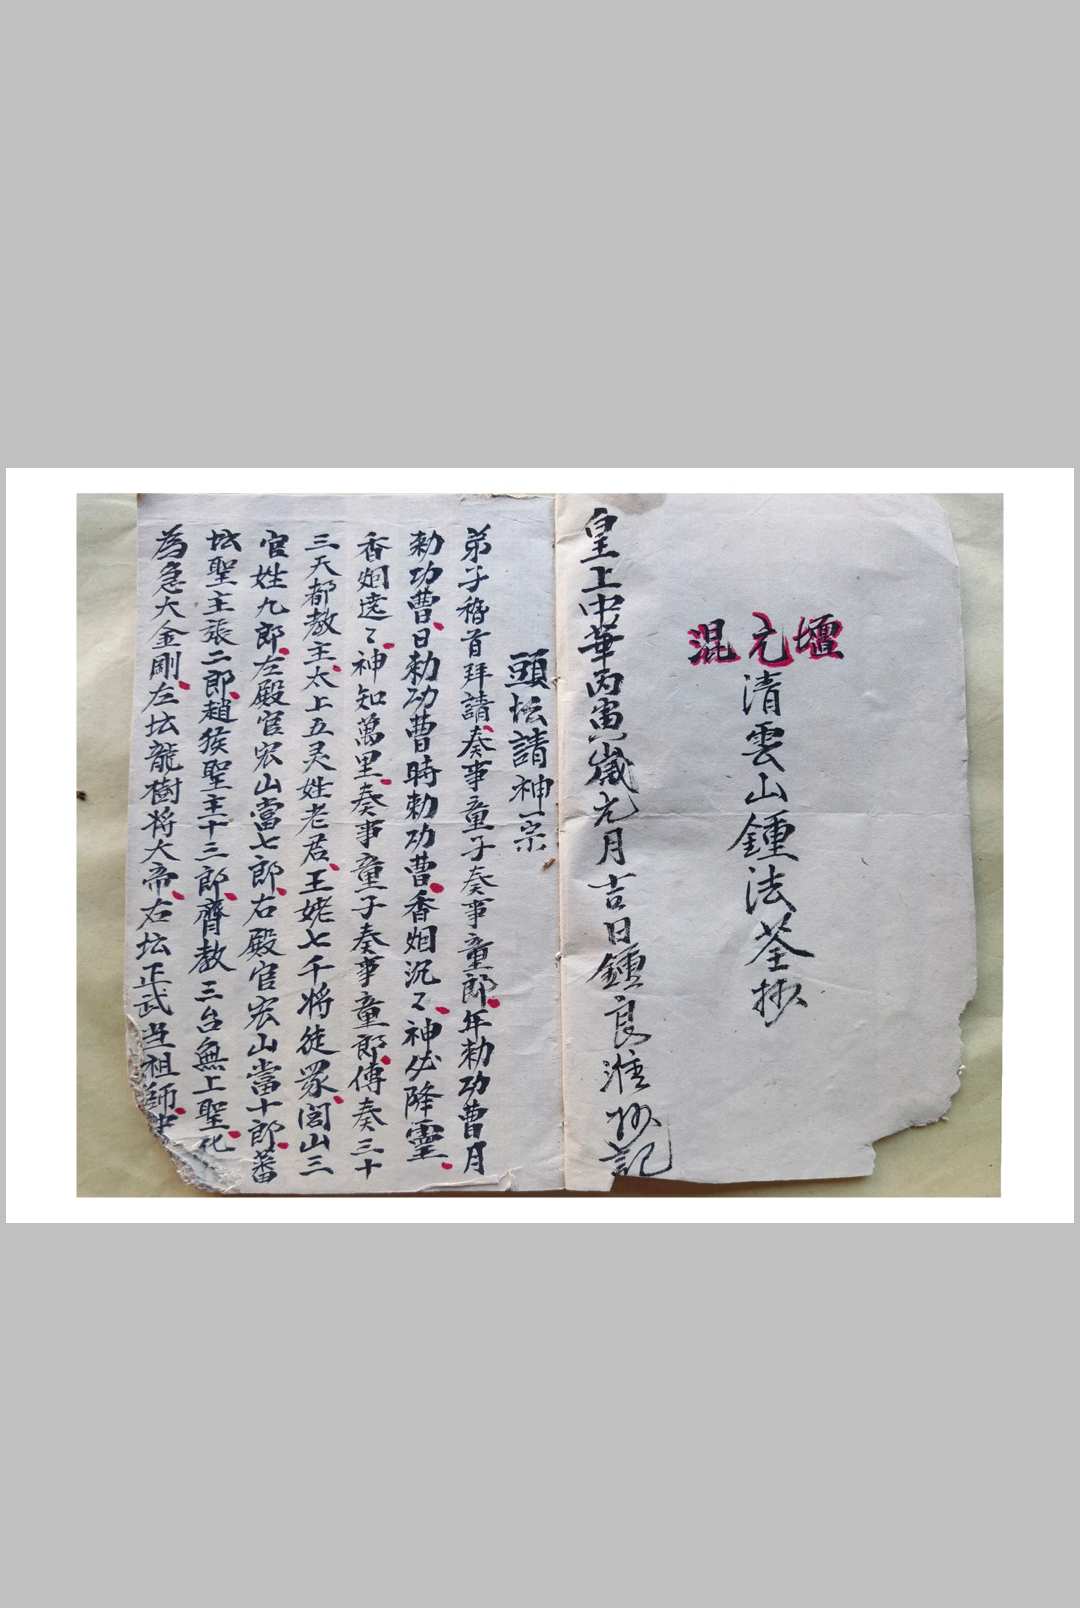 混元壇
清雲山鍾法荃抄
皇上中華丙寅歲元月吉日鍾良淮抄記
頭坛請神一宗
弟子稽首拜請奏事童子奏事童郎年勅功曹月
勅功曹日勅功曹時勅功曹香烟沉々神必降靈
香烟遠々神知萬里奏事童子奏事童郎傳奏三十
三天都教主太上五灵姓老君王姥七千将徒眾閭山三
官姓九郎左殿官宏山當七郎右殿官宏山當十郎蕃
坛聖主張二郎趙侯聖主十三郎齊教三台無上聖化
為急大金剛左坛龍樹将大帝右坛正武当祖師